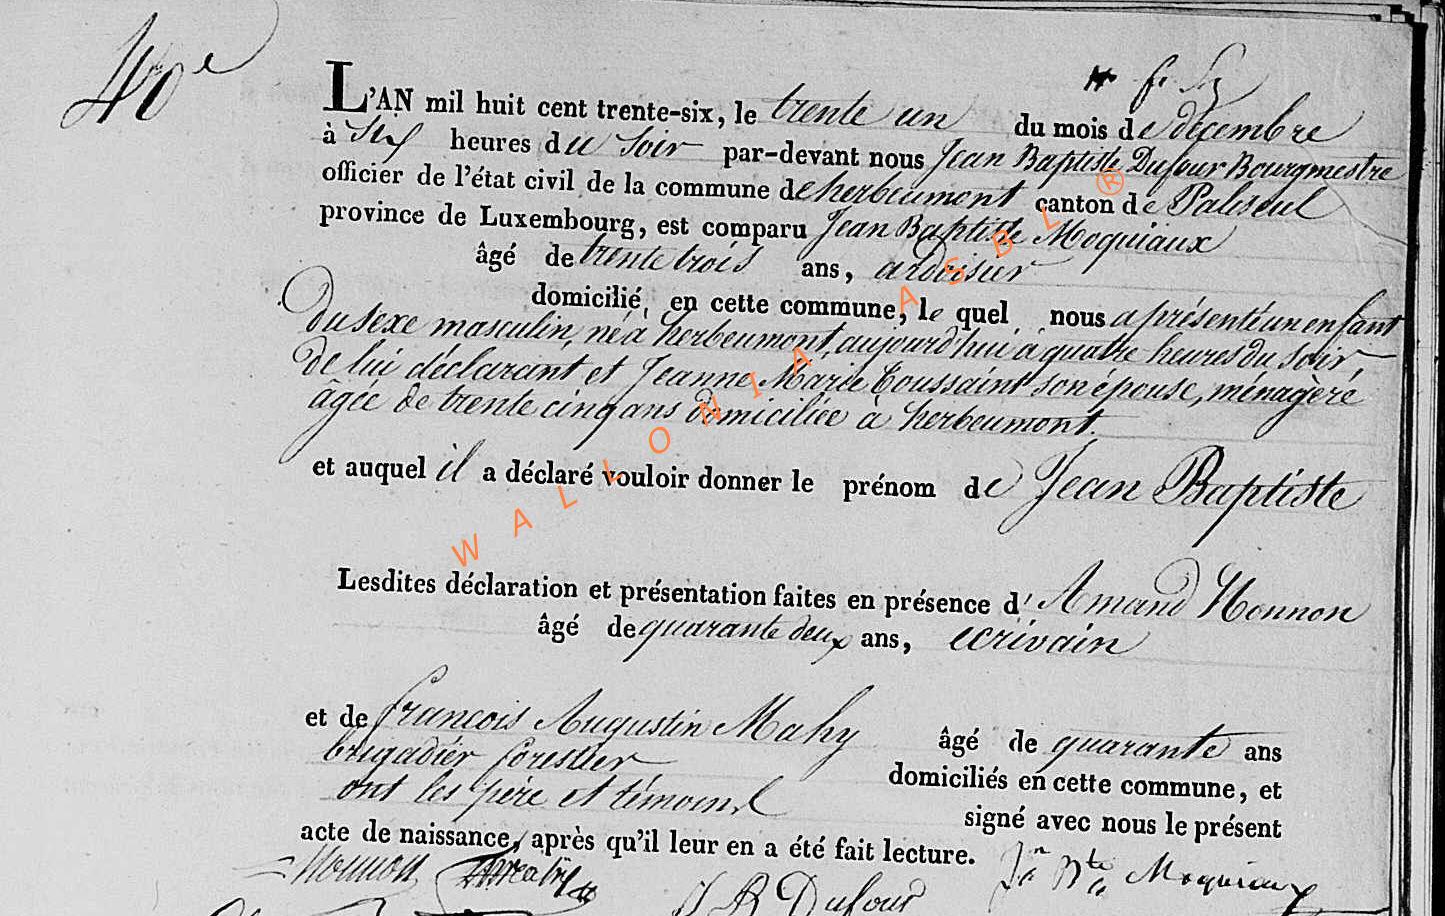 40e
L'AN mil huit cent trente-six, le trente un du mois de décembre
à six heures du soir par-devant nous Jean Baptiste Dufour Bourgmestre
officier de l'état civil de la commune de herbeumont canton de Paliseul
province de Luxembourg, est comparu Jean Baptiste Moquiaux
âgé de trente trois ans, ardoisier
domicilié en cette commune, le quel nous a présenté un enfant
Du sexe masculin, né à herbeumont, aujourd'hui à quatre heures du soir,
de lui déclarant et Jeanne Marie Toussaint son épouse, ménagère,
âgée de trente cinq ans domiciliée à herbeumont.
et auquel il a déclaré vouloir donner le prénom de Jean Baptiste
Lesdites déclaration et présentation faites en présence d'Amand Nonnon
âgé de quarante deux ans, ecrivain
et de françois Augustin Mahy âgé de quarante ans
brigadier forestier domiciliés en cette commune, et
ont les père et témoins signé avec nous le présent
acte de naissance, après qu'il leur en a été fait lecture.
Nonnon Jn Bte Moquiaux
J B Dufour
WALLONIA ASBL ®